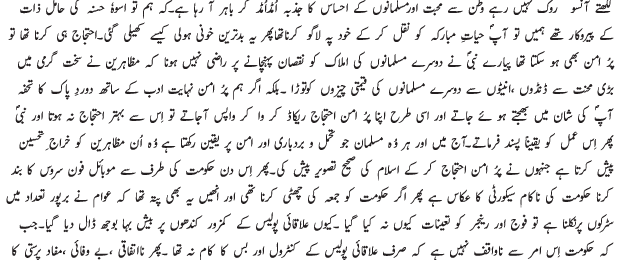 لکھتے آنسو روک نہیں رہے وطن سے محبت اورمسلمانوں کے احساس کا جذبہ اُنداُند کر باہر آ رہا ہے۔کہ ہم تو اسوۂ حسنہ کی حامل ذات
کے پیروکار تھے ہمیں تو آپؐ حیاتِ مبارکہ کو نقل کر کے خود پہ لاگو کرناتھاپھر یہ بدترین خونی ہولی کیسے کھیلی گئی۔احتجاج ہی کرنا تھا تو
پُر امن بھی ہو سکتا تھا پیارے نبیؐ نے دوسرے مسلمانوں کی املاک کو نقصان پہنچانے پر راضی نہیں ہونا کہ مظاہرین نے سخت گرمی میں
بڑی محنت سے ڈنڈوں ،انیٹوں سے دوسرے مسلمانوں کی قیمتی چیزوں کوتوڑا ۔بلکہ اگر ہم پُر امن نہایت ادب کے ساتھ دورِد پاک کا تحفہ
آپؐ کی شان میں بھیجتے ہو ئے جاتے اور اسی طرح اپنا پُر امن احتجاج ریکاڈ کر وا کر واپس آجاتے تو اِس سے بہتر احتجاج نہ ہوتا اور نبیؐ
پھر اِس عمل کو یقیناً پسند فرماتے۔آج میں اور ہر وُہ مسلمان جو تحمل و بردباری اور امن پر یقین رکھتا ہے وُہ اُن مظاہرین کو خراجِ تحسین
پیش کرتا ہے جنہوں نے پُر امن احتجاج کر کے اسلام کی صحیح تصویر پیش کی۔پھر اِس دن حکومت کی طرف سے موبائل فون سروس کا بند
کرنا حکومت کی ناکام سیکورٹی کا عکاس ہے پھر اگر حکومت کو جمعہ کی چھٹی کرنا تھی اور انھیں یہ بھی پتہ تھا کہ عوام نے برپور تعداد میں
سڑکوں پرنکلنا ہے تو فوج اور رینجر کو تعینات کیوں نہ کیا گیا ۔کیوں علاقائی پولیس کے کمزور کندھوں پر بیش بہا بوجھ ڈال دیا گیا۔جب
کہ حکومت اِس امر سے ناواقف نہیں ہے کہ صرف علاقائی پولیس کے کنٹرول اور بس کا کام نہ تھا ۔پھر نااتفاقی ،بے وفائی ،مفاد پرستی کا